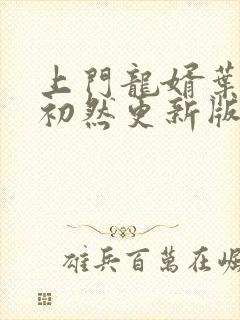 上門龍婿葉
初然更新版
雄兵百萬在崛